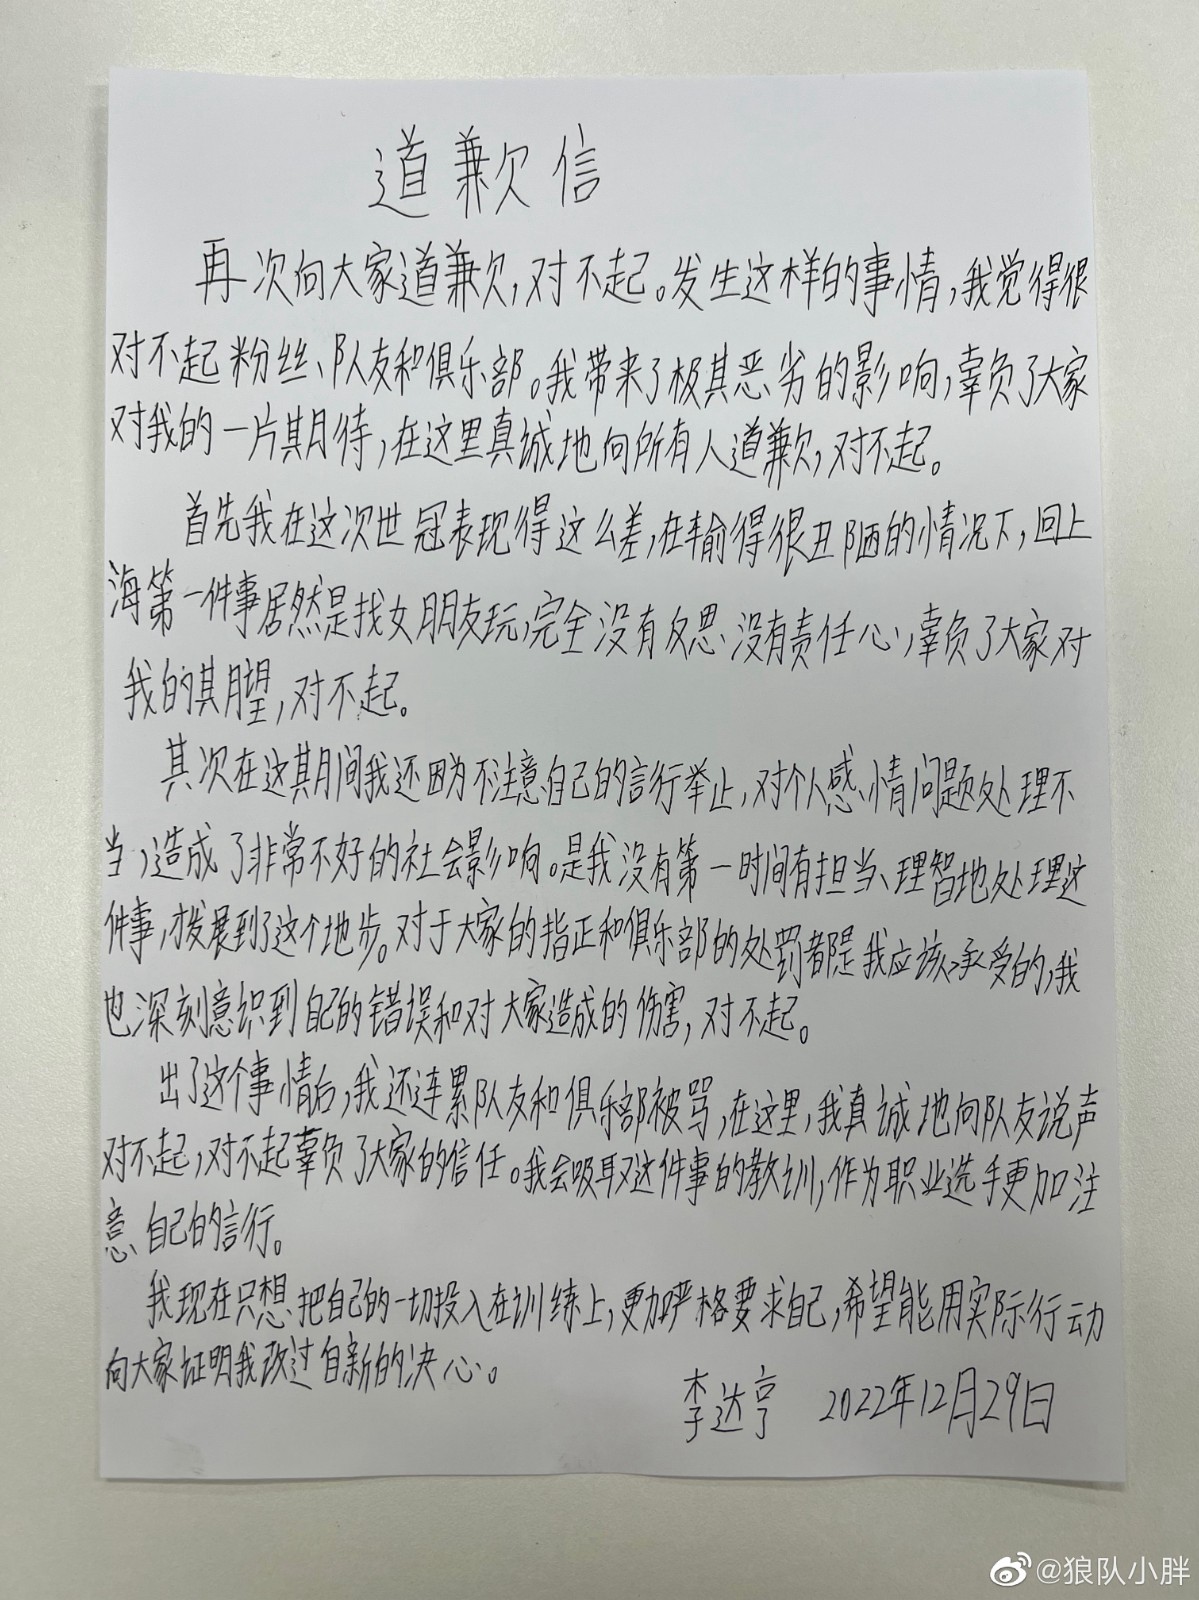 道歉信
再次向大家道歉,对不起。发生这样的事情,我觉得很
对不起粉丝、队友和俱乐部。我带来了极其恶劣的影响,辜负了大家
对我的一片期待,在这里真诚地向所有人道歉,对不起。
首先我在这次世冠表现得这么差,在输得很丑陋的情况下,回上
海第一件事居然是找女朋友玩,完全没有反思、没有责任心,辜负了大家对
我的期望,对不起。
其次在这期间我还因为不注意自己的言行举止,对个人感情问题处理不
当,造成了非常不好的社会影响。是我没有第一时间有担当、理智地处理这
件事,才发展到了这个地步。对于大家的指正和俱乐部的处罚都是我应该承受的,我
也深刻意识到自己的错误和对大家造成的伤害,对不起。
出了这个事情后,我还连累队友和俱乐部被骂,在这里,我真诚地向队友说声
对不起,对不起辜负了大家的信任。我会吸取这件事的教训,作为职业选手更加注
意自己的言行。
我现在只想把自己的一切投入在训练上,更加严格要求自己,希望能用实际行动
向大家证明我改过自新的决心。
李达亨 2022年12月29日
@狼队小胖